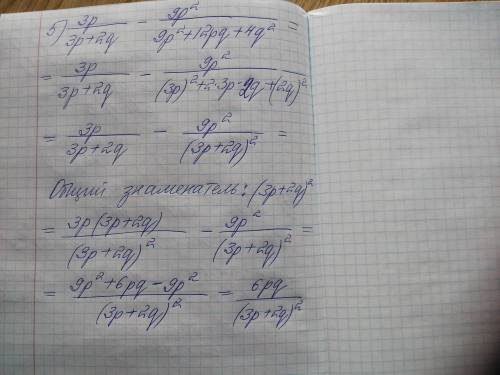 5) 3p/(3p+2q) - 9p²/(9p²+12pq+4q²) =
= 3p/(3p+2q) - 9p²/((3p)²+2·3p·2q+(2q)²)
= 3p/(3p+2q) - 9p²/(3p+2q)² =
Общий знаменатель: (3p+2q)²
= 3p(3p+2q)/(3p+2q)² - 9p²/(3p+2q)² =
= (9p²+6pq-9p²)/(3p+2q)² = 6pq/(3p+2q)²